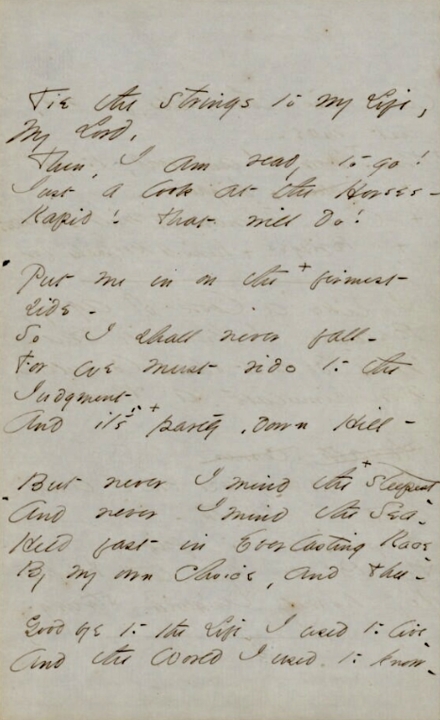 Tie the strings to my Life,
My Lord,
Then, I am ready to go!
Just a look at the Horses -
Rapid! That will do!
Put me in on the + firmest
side -
So I shall never fall -
For we must ride to the
Judgment -
And it's + partly, down Hill -
But never I mind the + steepest
And never I mind the Sea -
Held fast in Everlasting Race
By my own Choice, and Thee -
Good bye to the Life I used to live -
And the World I used to know -